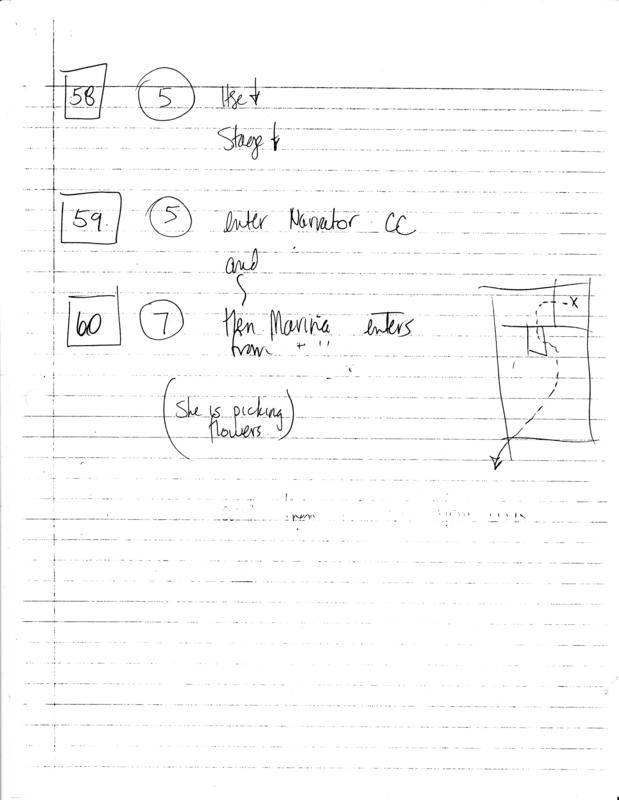 58 5 Hse ↓
Stage ↓
59. 5 enter Narrator CC
and
60 7 then Marina enters
from " "
-X
(She is picking
flowers)